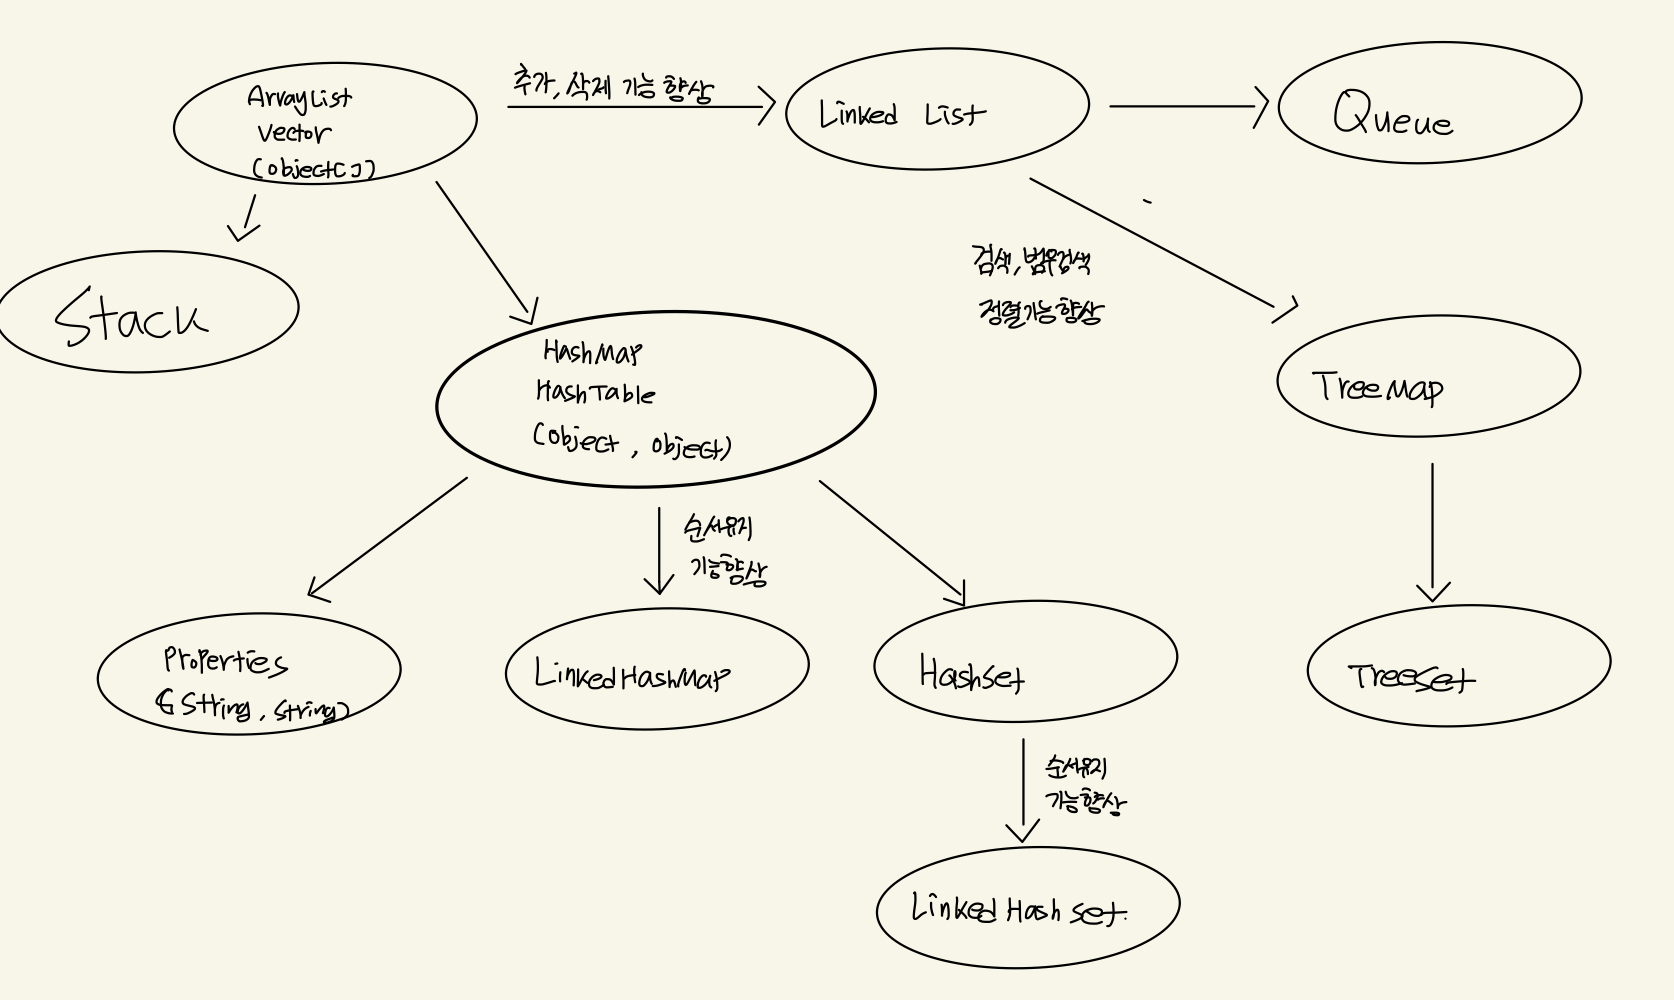 ArrayList
Vector
(object[])
추가, 삭제 기능 향상
Linked List
Queue
Stack
검색, 범위검색
정렬기능향상
HashMap
HashTable
(object, object)
TreeMap
순서유지
기능향상
Properties
(String, String)
LinkedHashMap
HashSet
TreeSet
순서유지
기능향상
Linked Hash Set.